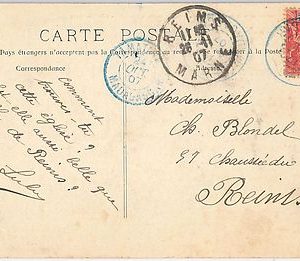 CARTE POSTALE
Pays étrangers n'acceptent pas la Correspondance au recto
Correspondance
Comment
trouvez-tu
cette église?
est-elle aussi belle que
de Reims?
Luly
REIMS
07
MARNE
Mademoiselle
Ch. Blondel
57 Chaussée du
Reims